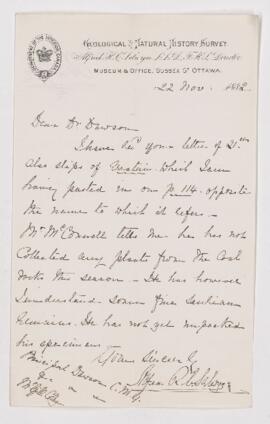 GEOLOGICAL & NATURAL HISTORY SURVEY.
Alfred R. C. Selwyn L.L.D. F.R.S. Director
MUSEUM & OFFICE, SUSSEX ST OTTAWA.
22 Nov. 1882
Dear Dr Dawson
I have recd your letter of 21st
also slips of which I am
having pasted in on p. 114 opposite
the name to which it refers.
Mr McConnell tells me he has not
collected any plants from the Coal
rocks this season - He has however
I understand some fine
He has not yet unpacked
his specimens
Yours sincerely
Alfred R. C. Selwyn
Principal Dawson C.M.G.